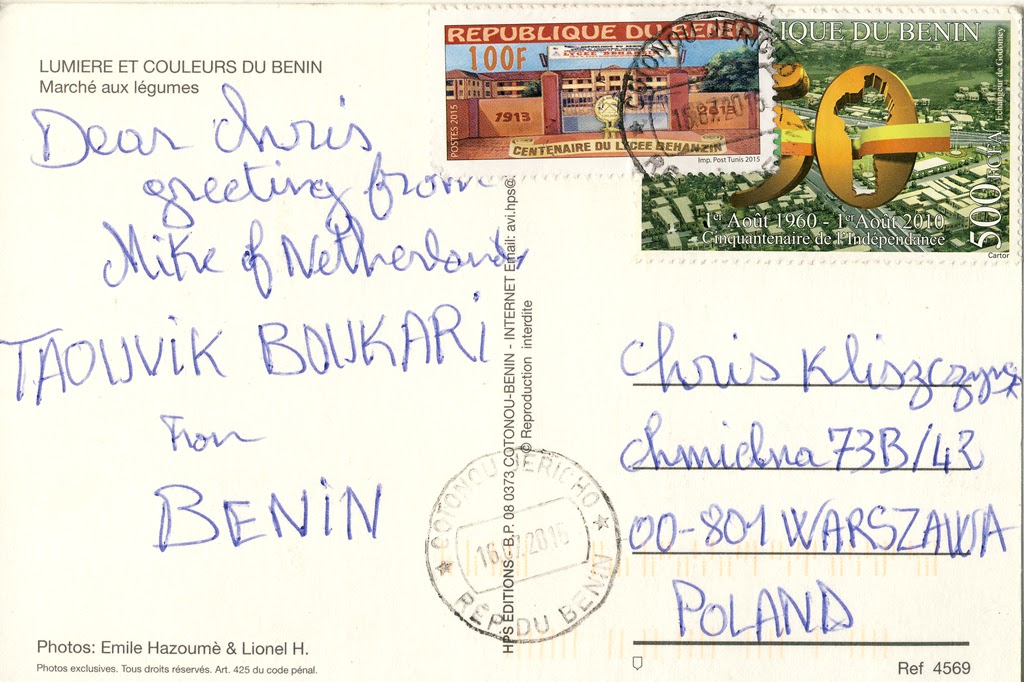 LUMIERE ET COULEURS DU BENIN
Marché aux légumes
Dear Chris
greeting from
Mike of Netherlands
TAOUVIK BOUKARI
From
BENIN
Photos: Emile Hazoumè & Lionel H.
Photos exclusives. Tous droits réservés. Art. 425 du code pénal.
HPS EDITIONS - B.P. 08 0373 COTONOU-BENIN - INTERNET Email: avi.hps@
© Reproduction interdite
REPUBLIQUE DU BENIN
100F
LYCEE BEHANZIN
1913
2013
CENTENAIRE DU LYCEE BEHANZIN
POSTES 2015
Imp. Post Tunis 2015
IQUE DU BENIN
Echangeur de Godomey
500 F CFA
1er Août 1960 - 1er Août 2010
Cinquantenaire de l'Indépendance
Cartor
COTONOU JERICHO
COTONOU JERICHO
REP. DU BENIN
Chris Kliszczynski
Chmielna 73B/42
00-801 WARSZAWA
POLAND
Ref 4569